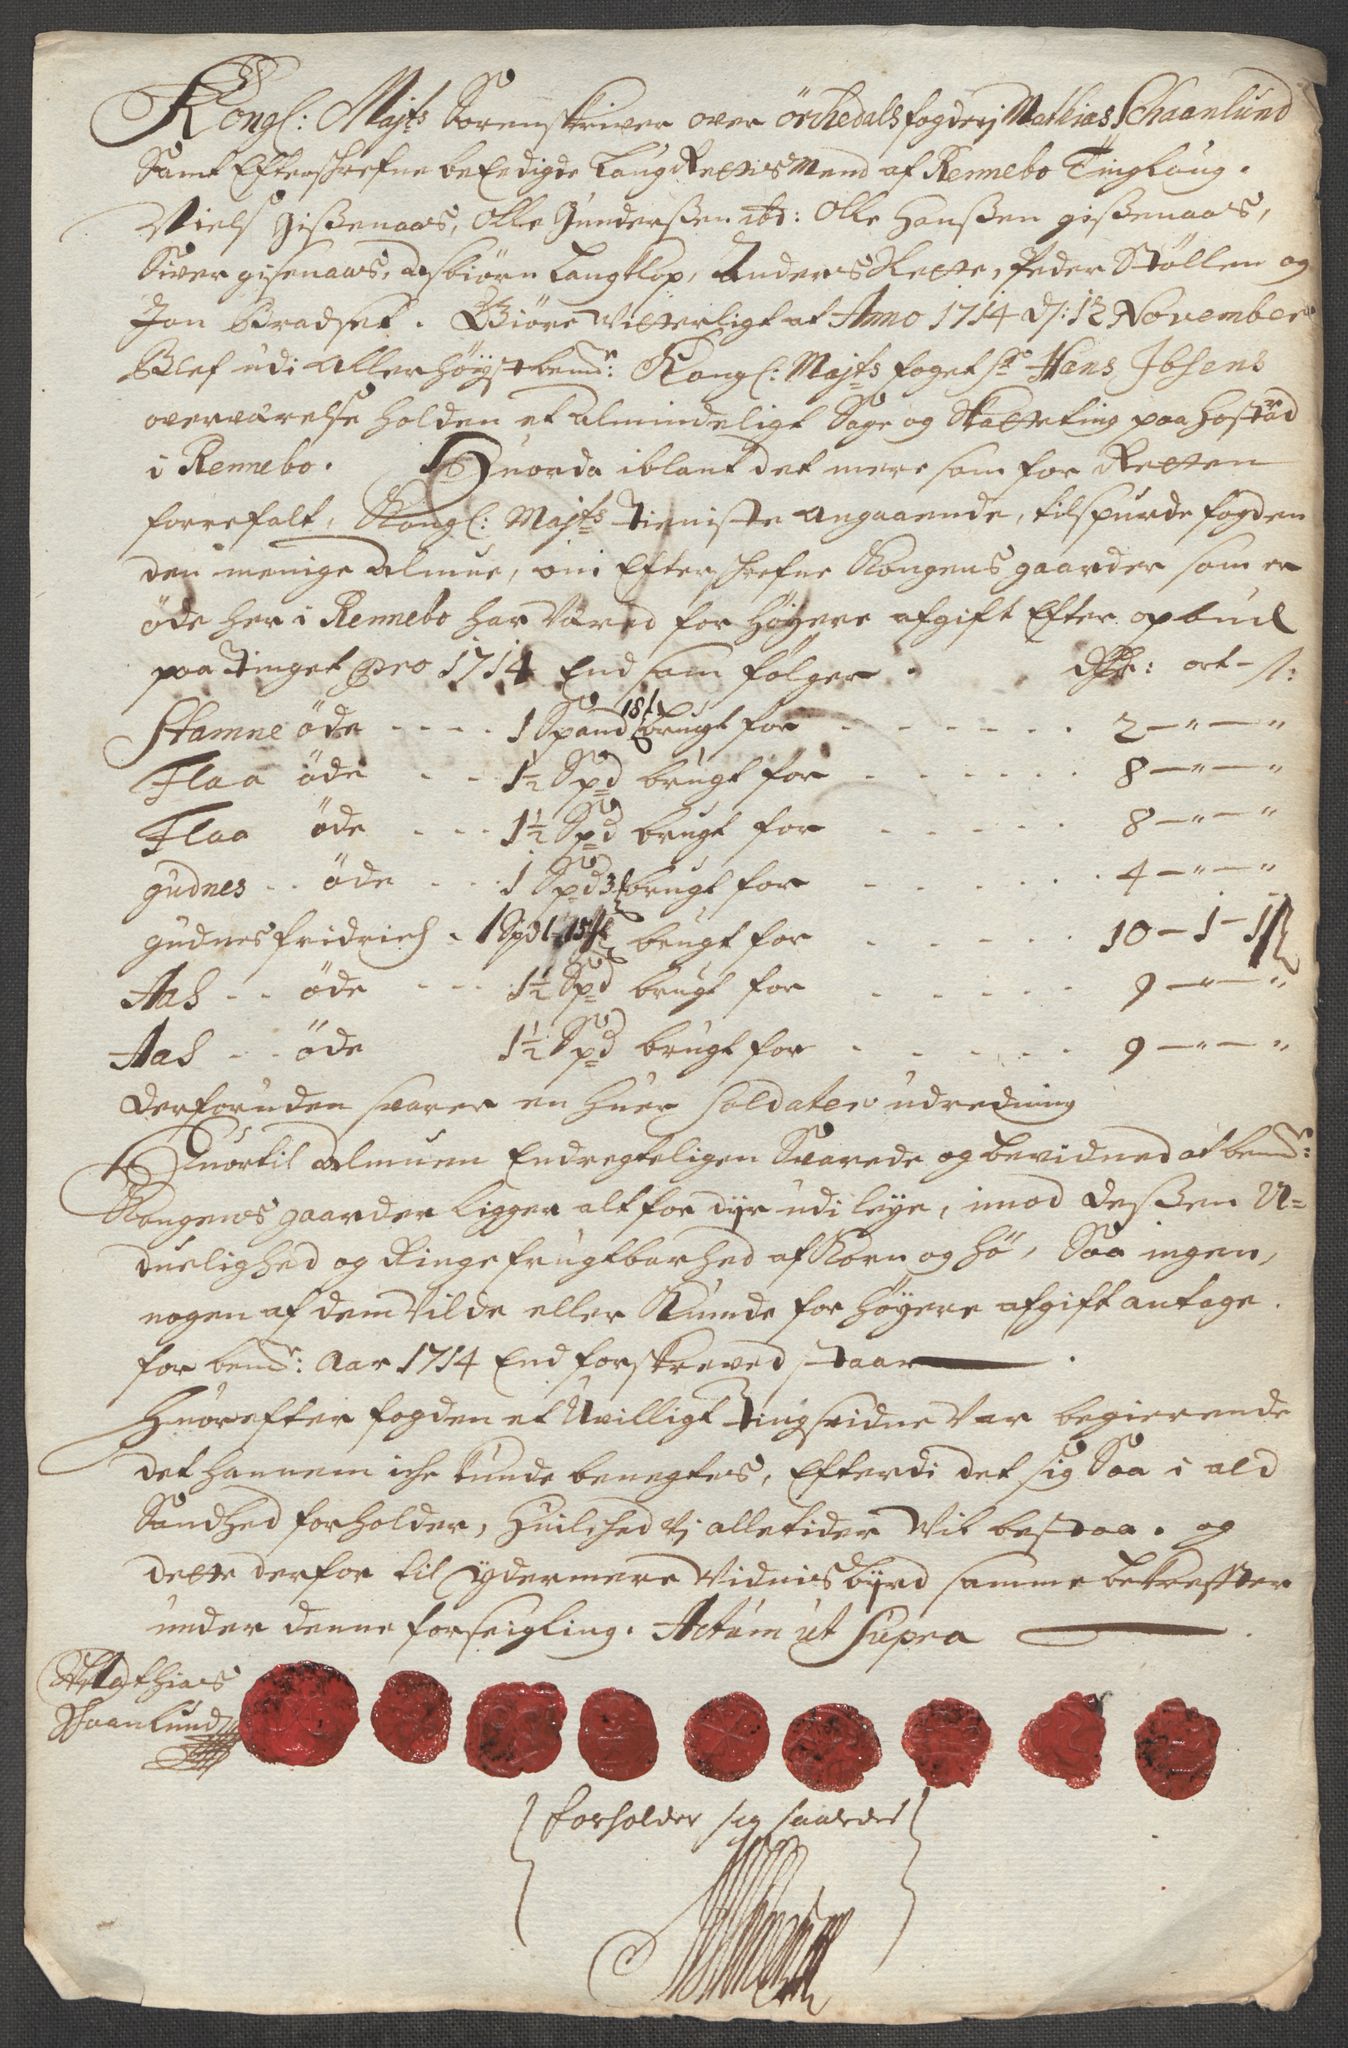 Kongl: Majts Sorenskriver over Örchedals fogderj Mathias Schaanlund
Samt Efterschrefne beEedigde LaugRettis Mend af Rennebo Tinglaug.
Niels Gissenaas, Olle Gunderssen ibd: Olle Hanssen gissenaas,
Siver gisenaas, Asbiörn Langklop, Anders Mette, Peder Stöllen og
Jon Bradset. Giöre Vitterligt at Anno 1714 d: 12 November
Blef udi allerhöystbemte: Kongl: Majts foget Sr Hans Ibsens
overværelse holden et almindeligt Sage og Skatteting paa Hostad
i Rennebo. Huorda iblant det mere som for Retten
forrefalt, Kongl: Majts tieniste angaaende, tilspurde fogden
den menige almue, om Efterschrefne Kongens gaarder som er
öde her i Rennebo har Væred for höyere afgift Efter opbud
paa Tinget pro 1714 End som fölger. dlr: ort - s:
Stamne öde - - - - 1 Spand 18 brugt for - - - - - - 2 - " - "
Flaa öde - - 1½ Spd brugt for - - - - - - 8 - " - "
Flaa öde - - - 1½ Spd brugt for - - - - - 8 - " - "
gudnes - - öde - - - 1 Spd 3 brugt for - - - - - - 4 - " - "
gudnes fridrich - 1 Spd 1 - 15 brugt for - - - - - 10 - 1 - 1
Aas - - öde - - - 1½ Spd brugt for - - - - - 9 - " - "
Aas - - öde 1½ Spd brugt for - - - - - 9 - " - "
derforuden svarer en huer Soldater udredning
Huortil almuen Endregteligen Svarede og bevidned at bemte:
Kongens gaarder ligger alt for dyr udi leye, imod dessen U-
duelighed og Ringe frugtbarhed af Korn og hö, Saa ingen,
nogen af dem Vilde eller Kunde for höyere afgift antage
for bemte: Aar 1714 End forskreved staar.
Huorefter fogden et Uvilligt Tingsvidne Var begierende
det hannem iche kunde benegtes, Efterdi det sig Saa i ald
Sandhed forholder, Huilched Vj alletider Vil bestaa. og
dette derfor til ydermere Vidnisbyrd samme bekreffter
under denne forseigling. Actum ut Supra
Mathias
Schaanlund
forholder sig saaledes